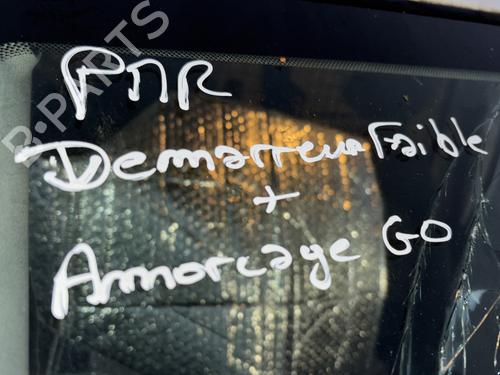 PMR
Demarreur Faible
+
Amorcage GO
B-PARTS